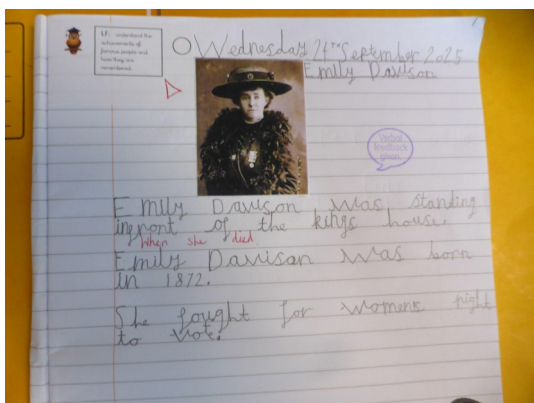 LF: understand the
achievements of
famous people and
how they are
remembered.
Wednesday 24th September 2025
Emily Davison
Verbal
feedback
given.
Emily Davison was standing
infront of the kings house.
When she died
Emily Davison was born
in 1872.
She fought for womens right
to vote.